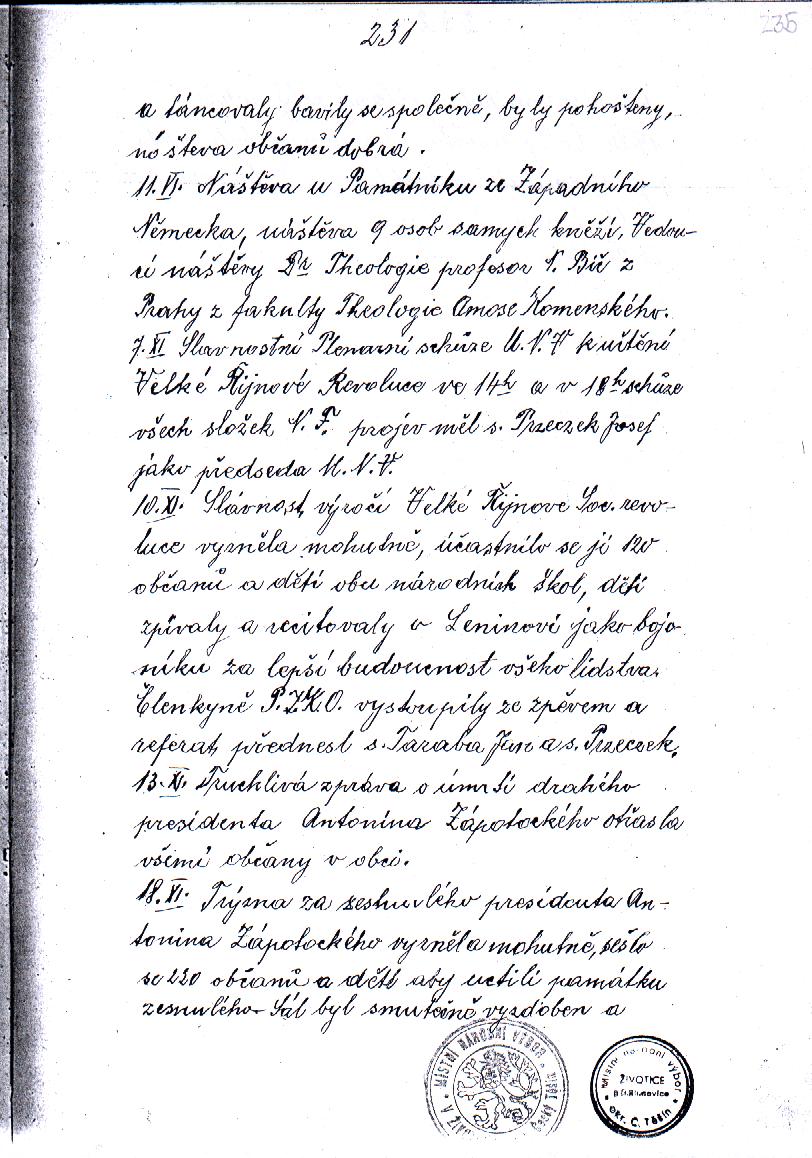 231
235
a táncovaly bavily se společně, byly pohošteny,
nóšteva občanů dobrá.
11.VI. Náštěva u Památníku ze Západního
Německa, náštěva 9 osob samych kněží, Vedou-
cí náštěvy Dr Theologie profesor N. Bič z
Prahy z fakulty Theologie Amose Komenského.
7.XI Slavnostní Plenarní schůze M.N.V k uštění
Velké Řijnové Revoluce ve 14h a v 18h schůze
všech složek N.F. projev měl s. Przeczek Josef
jako předseda M.N.V.
10.XI. Slávnost výročí Velké Řijnove Soc. revo-
luce vyzněla mohutně, účastnilo se jí 120
občanů a dětí obu národních škol, děti
zpívaly a recitovaly o Leninovi jako bojo-
níku za lepší budoucnost všeho lidstva.
Členkyně P.Z.K.O. vystoupily ze zpěvem a
referat přednesl s. Taraba Jan a s. Przeczek.
13.XI. Truchlivá zpráva o úmrtí drahého
presidenta Antonína Zápotockého otřasla
všemi občany v obci.
18.XI. Trýzna za zesnulého presidenta An-
tonina Zápotockého vyzněla mohutně, sešlo
se 220 občanů a dětí aby uctili památku
zesnulého. Sál byl smutečně vyzdoben a
MÍSTNÍ NÁRODNÍ VÝBOR
Místní národní výbor
ŽIVOTICE
okr. Č. Těšín